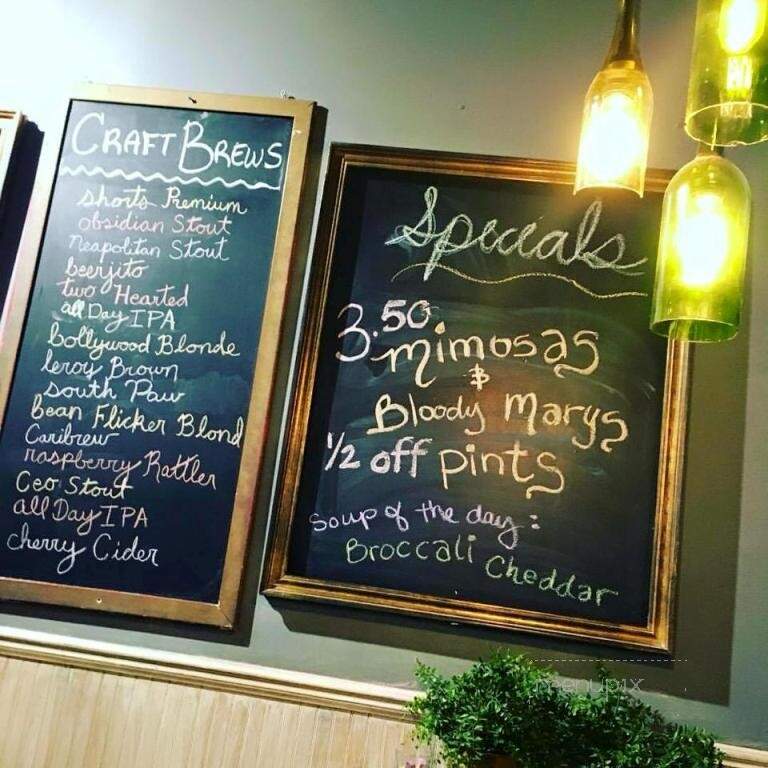 CRAFT BREWS
shorts Premium
obsidian Stout
Neapolitan Stout
beerjito
two Hearted
all Day IPA
bollywood Blonde
leroy Brown
south Paw
bean Flicker Blond
Caribrew
raspberry Rattler
Ceo Stout
all Day IPA
cherry Cider
Specials
3.50
mimosas
&
Bloody Marys
1/2 off pints
Soup of the day:
Broccali Cheddar
menupix